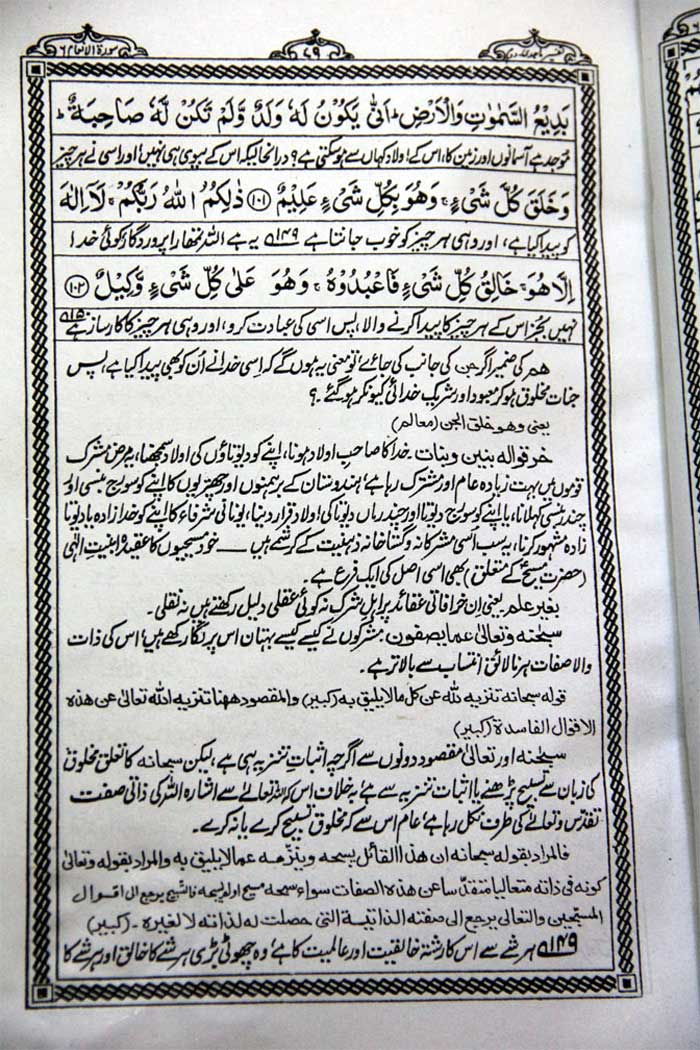 سورة الانعام ٦
٤٩
تفسیر ماجدی
بَدِيْعُ السَّمٰوٰتِ وَالْاَرْضِ ؕ اَنّٰى يَكُوْنُ لَهٗ وَلَدٌ وَّلَمْ تَكُنْ لَّهٗ صَاحِبَةٌ ؕ
موجد ہے آسمانوں اور زمین کا، اس کے اولاد کہاں سے ہوسکتی ہے؟ درانحالیکہ اس کے بیوی ہی نہیں، اور اسی نے ہر چیز
وَخَلَقَ كُلَّ شَىْءٍ ۚ وَهُوَ بِكُلِّ شَىْءٍ عَلِيْمٌ ﴿۱۰۱﴾ ذٰلِكُمُ اللّٰهُ رَبُّكُمْ ۚ لَاۤ اِلٰهَ
کو پیدا کیا ہے، اور وہی ہر چیز کو خوب جانتا ہے ۱۴۹ یہ ہے اللہ تمھارا پروردگار، کوئی خدا
اِلَّا هُوَ ۚ خَالِقُ كُلِّ شَىْءٍ فَاعْبُدُوْهُ ۚ وَهُوَ عَلٰى كُلِّ شَىْءٍ وَّكِيْلٌ ﴿۱۰۲﴾
نہیں بجز اس کے، ہر چیز کا پیدا کرنے والا، پس اسی کی عبادت کرو، اور وہی ہر چیز کا کارساز ہے ۱۵۰
ھم کی ضمیر اگر جن کی جانب کی جائے، تو معنی یہ ہوں گے کہ اسی خدا نے اُن کو بھی پیدا کیا ہے، پس
جنات مخلوق ہو کر معبود اور شریک خدائی کیونکر ہو گئے۔؟
یعنی وھو خلق الجن (معالم)
خرقوالہ بنین وبنات۔ خدا کا صاحب اولاد ہونا، اپنے کو دیوتاؤں کی اولاد سمجھنا، یہ مرض مشرک
قوموں میں بہت زیادہ عام اور مشترک رہا ہے، ہندوستان کے برہمنوں اور چھتریوں کا اپنے کو سورج بنسی اور
چندر بنسی کہلانا، یا اپنے کو سورج دیوتا اور چندرماں دیوتا کی اولاد قرار دینا، یونانی شرفاء کا اپنے کو خدا زادہ یا دیوتا
زادہ مشہور کرنا، یہ سب اسی مشرکانہ و گستاخانہ ذہنیت کے کرشمے ہیں —— خود مسیحیوں کا عقیدہ ابنیت الٰہی
(حضرت مسیح کے متعلق) بھی اسی اصل کی ایک فرع ہے۔
بغیر علم یعنی ان خرافاتی عقائد پر اہل شرک نہ کوئی عقلی دلیل رکھتے ہیں نہ نقلی۔
سبحٰنہ وتعالیٰ عما یصفون۔ مشرکوں نے کیسے کیسے بہتان اس پر لگا رکھے ہیں، اس کی ذات
والاصفات ہر نالائق انتساب سے بالاتر ہے۔
قولہ سبحانہ تنزیہ للہ عن کل مالا یلیق بہ (کبیر) والمقصود ھھنا تنزیہ اللہ تعالیٰ عن ھذہ
الاقوال الفاسدۃ (کبیر)
سبحٰنہ اور تعالیٰ مقصود دونوں سے اگرچہ اثبات تنزیہ ہی ہے، لیکن سبحانہ کا تعلق مخلوق
کی زبان سے تسبیح پڑھنے یا اثبات تنزیہ سے ہے، بہ خلاف اس کے تعالیٰ سے اشارہ اللہ کی ذاتی صفت
تقدّس و تعالیٰ کی طرف نکل رہا ہے، عام اس سے کہ مخلوق تسبیح کرے یا نہ کرے۔
فالمراد بقولہ سبحانہ ان ھذا القائل یسبحہ وینزھہ عمالا یلیق بہ والمراد بقولہ وتعالیٰ
کونہ فی ذاتہ متعالیا متقدسا عن ھذہ الصفات سواء سبحہ مسبح اولم یسبحہ فالتسبیح یرجع الی اقوال
المسبّحین والتعالی یرجع الی صفتہ الذاتیۃ التی حصلت لہ لذاتہ لا لغیرہ۔ (کبیر)
۱۴۹ ہر شے سے اس کا رشتہ خالقیت اور عالمیت کا ہے، وہ چھوٹی بڑی ہر شے کا خالق اور ہر شے کا